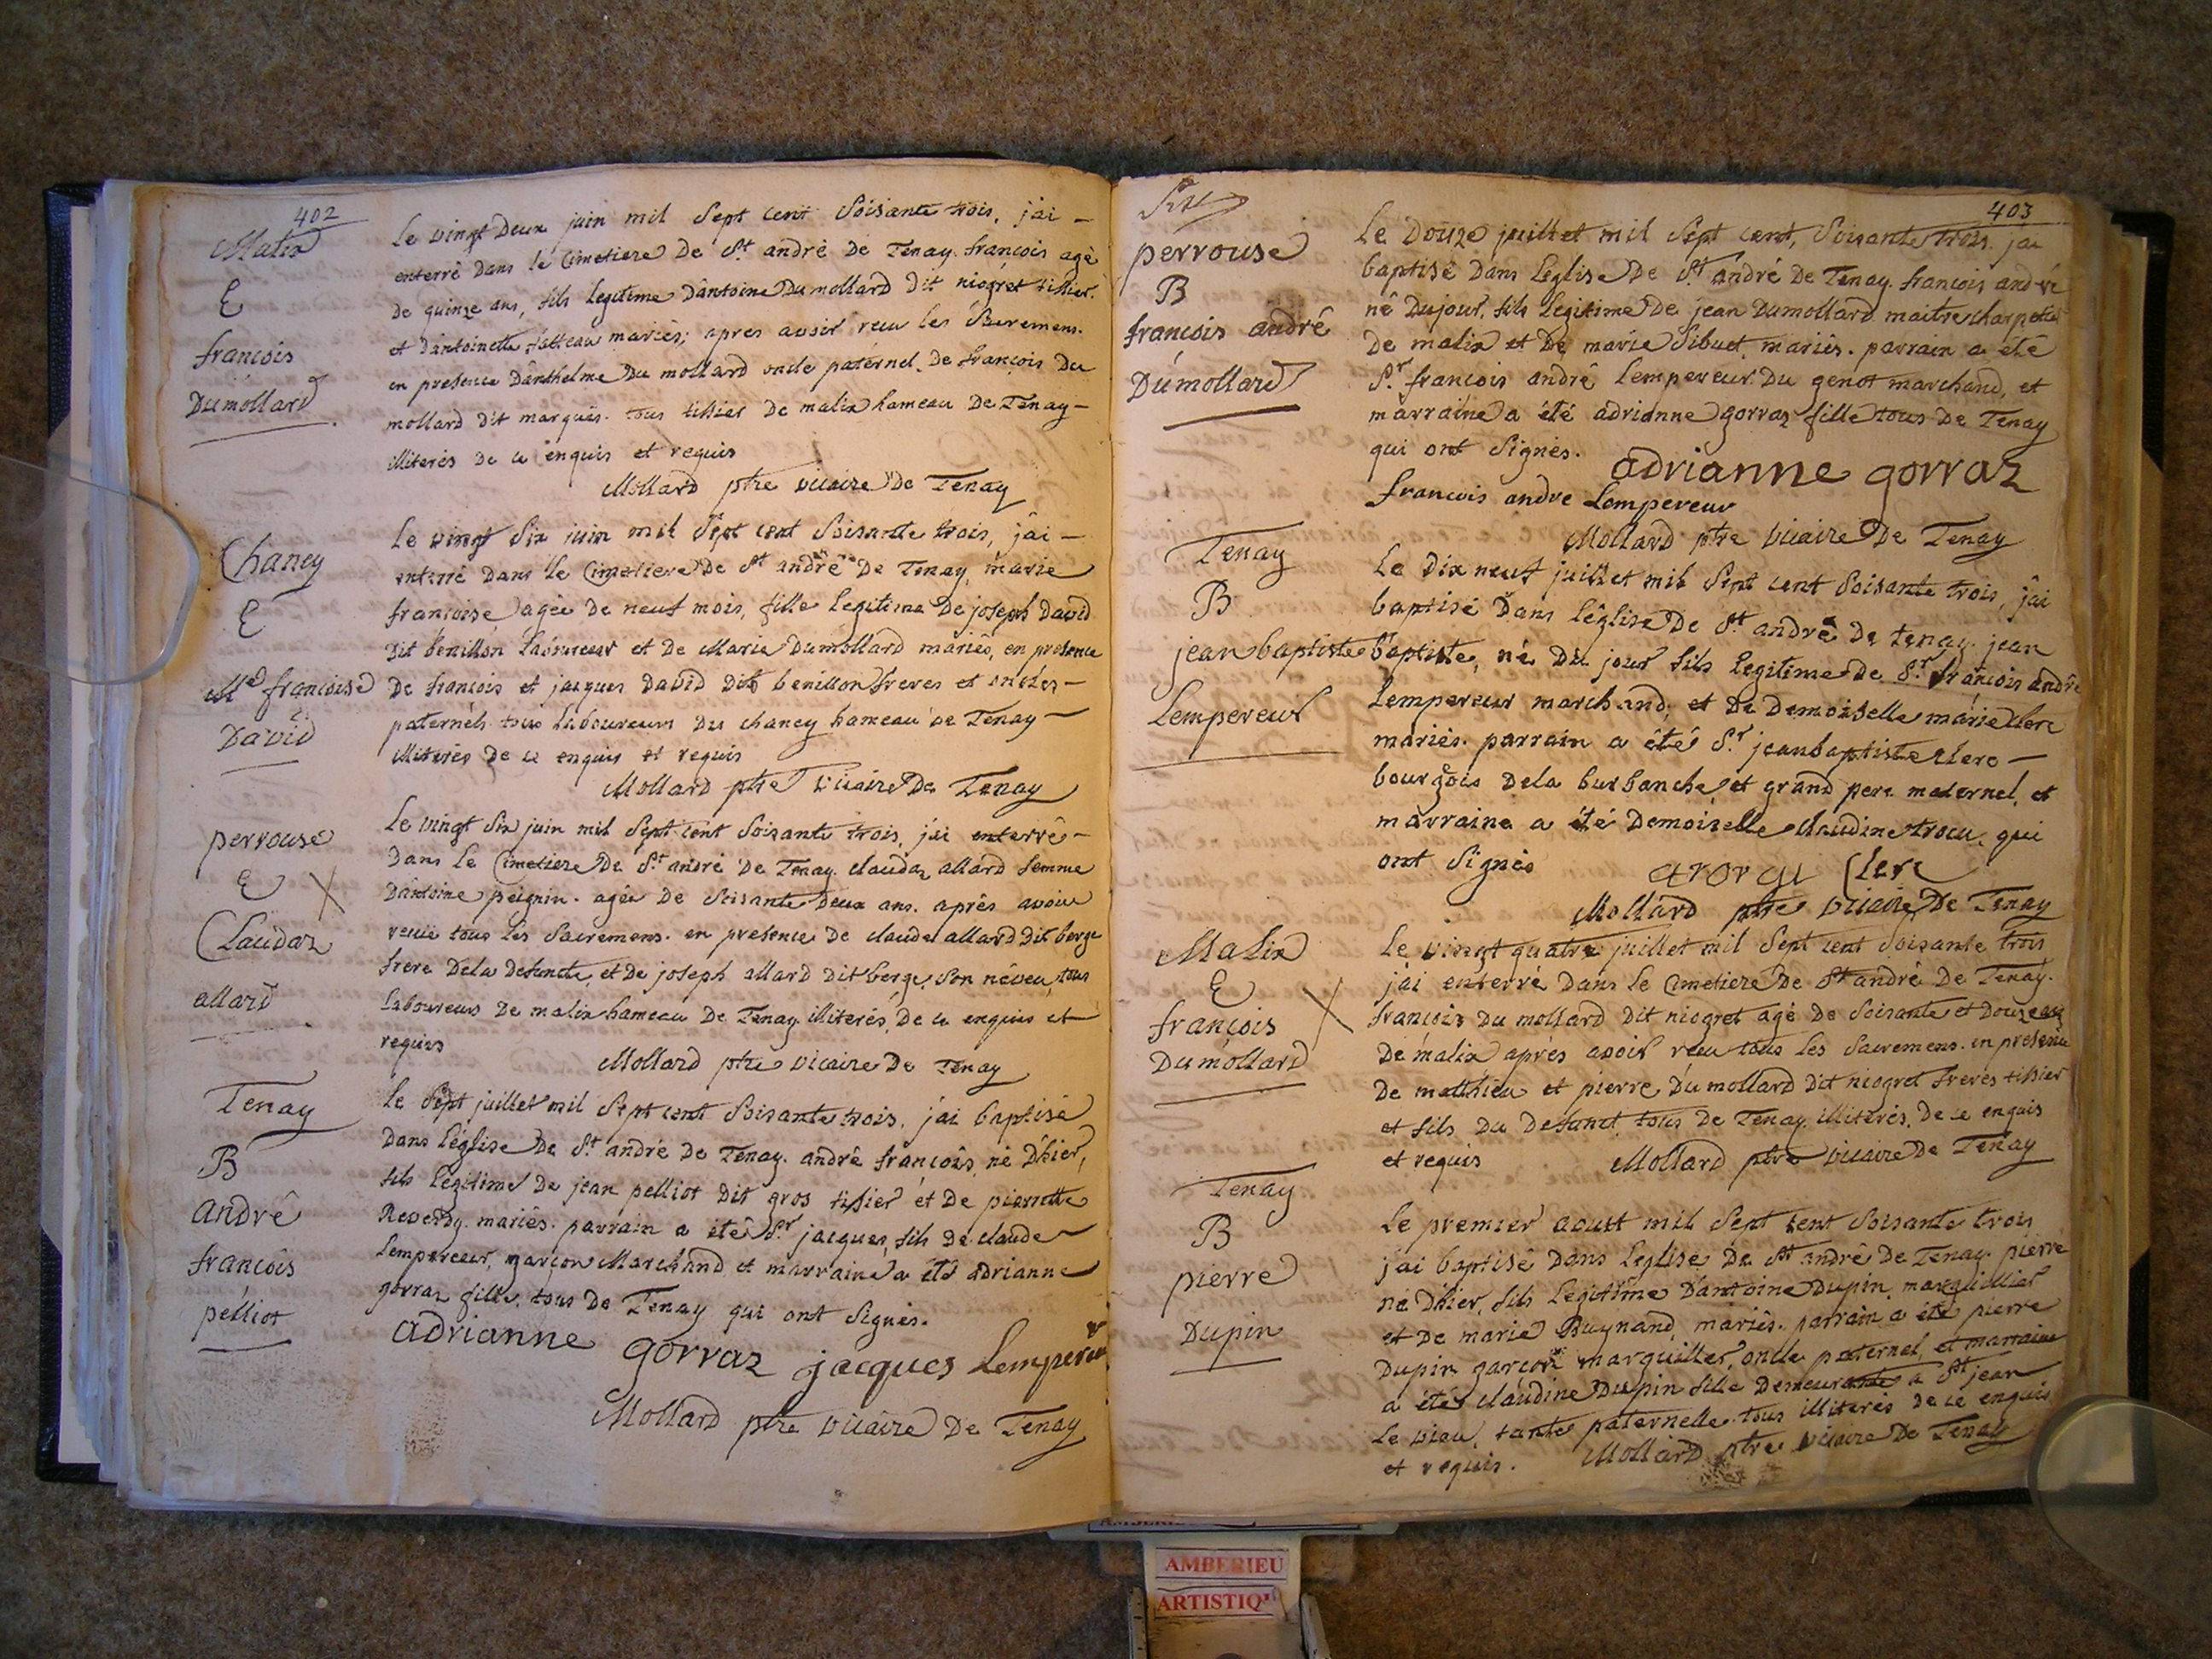 402
Malix
E
françois
Dumollard
Le vingt Deux juin mil Sept cent Soisante trois, j'ai -
enterré Dans le Cimetiere De St. andré De Tenay françois agè
De quinze ans, fils Legitime D'antoine Dumollard Dit niogret tissier.
et D'antoinette mariés; apres avoir recu les Sacremens.
en presence D'anthelme Du mollard oncle paternel, De françois Du
mollard Dit marquis. tous tissier De malix hameau De Tenay -
illiterés De ce enquis et requis
Mollard ptre vicaire De Tenay
Chaney
E
Me. françoise
David
Le vingt Six juin mil Sept cent Soisante trois, j'ai -
enterré Dans le Cimetiere De St andré De Tenay, marie
françoise agée De neuf mois, fille Legitime De joseph David
Dit benillon Laboureur et De Marie Dumollard mariés, en presence
De françois et jacques David Dit benillon freres et oncles -
paternels tous Laboureurs Du chaney hameau De Tenay -
illiterés De ce enquis et requis
Mollard ptre Vicaire De Tenay
perrouse
E X
Claudaz
allard
Le vingt Six juin mil Sept cent Soisante trois, j'ai enterrés -
Dans Le Cimetiere De St. andré De Tenay. claudaz allard femme
D'antoine peignin. agée De Soisante Deux ans. aprés avoir
recue tous Les Sacremens. en presence De claude allard Dit berge
frere Dela Defuncte, et De joseph allard Dit berge, Son néveu, tous
Laboureurs De malix hameau De Tenay illiterés, De ce enquis et
requis
Mollard ptre vicaire De Tenay
Tenay
B
andrê
françois
pelliot
Le Sept juillet mil Sept cent Soisante trois, j'ai baptisé
Dans L'église De St andré De Tenay. andré françois, né D'hier,
fils Legitime De jean pelliot Dit gros tissier et De pierrette
Reverdy. mariés. parrain a été Sr jacques, fils De claude
Lempereur, garçon Marchand et marraine a été adrianne
gorraz fille, tous De Tenay qui ont Signés.
adrianne gorraz jacques Lempereur
Mollard ptre vicaire De Tenay
403
perrouse
B
francois andrê
Dumollard
Le Douze juillet mil Sept cent, Soisante trois. jai
baptisé Dans Leglise De St. andré De Tenay. françois andré
né Dujour, fils Legitime De jean Dumollard maitre charpetier
De malix et De marie Sibuet, mariés. parrain a été
Sr. francois andrê Lempereur Du genot marchand, et
marraine a été adrianne gorraz fille tous De Tenay
qui ont Signés.
adrianne gorraz
francois andre Lempereur
Mollard ptre Vicaire De Tenay
Tenay
B
jean baptiste
Lempereur
Le Dix neuf juillet mil Sept cent Soisante trois, j'ai
baptisé Dans l'église De St. andrè De tenay. jean
baptiste, né Du jour fils Legitime De Sr. françois andrê
Lempereur marchand, et De Demoiselle marie clerc
mariés. parrain a été Sr. jean baptiste clerc -
bourgois Dela burbanche, et grand pere maternel, et
marraine a été Demoiselle claudine trocu, qui
ont Signés
Clerc
Mollard ptre vicaire De Tenay
Malix
E X
françois
Dumollard
Le vingt quatre juillet mil Sept cent Soisante trois
j'ai enterré Dans Le Cimetiere De St andré De Tenay.
françois Du mollard Dit niogret agé De Soisante et Douze ans
De malix aprés avoir recu tous Les Sacremens. en presence
De matthieu et pierre Du mollard Dit niogret freres tissier
et fils Du Defunct, tous De Tenay, illiterés, De ce enquis
et requis
Mollard ptre vicaire De Tenay
Tenay
B
pierre
Dupin
Le premier aoust mil Sept cent Soisante trois
j'ai baptisé Dans Leglise De St andrê De Tenay. pierre
né D'hier, fils Legitime D'antoine Dupin, marguillier
et De marie Buynand, mariés. parrain a été pierre
Dupin garçon marguillier, oncle paternel, et marraine
a été claudine Dupin fille Demeurante a St jean
Le vieu, tante paternelle tous illiterés De ce enquis
et requis.
Mollard ptre vicaire De Tenay
AMBERIEU
ARTISTIQ